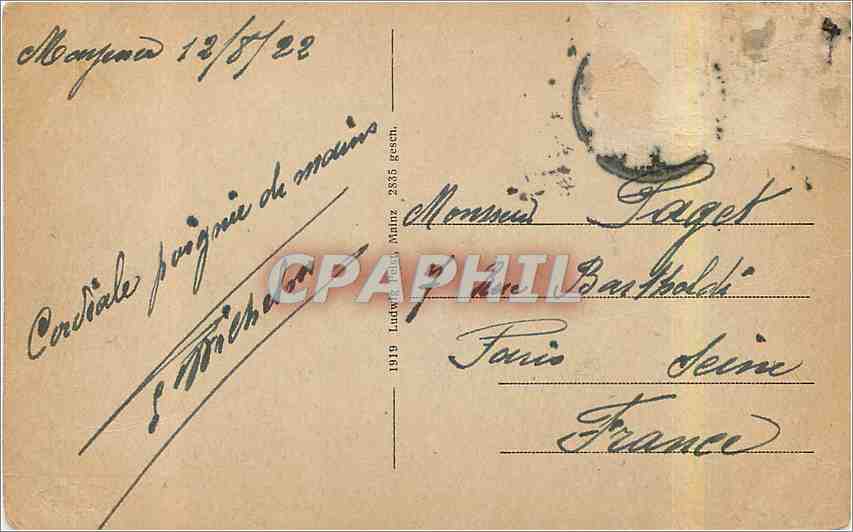 12/8/22
Cordiale poignée de mains
Wilhelm
1919 Ludwig Feist, Mainz 2835 gesch.
Monsieur Paget
7 Rue Bartholdi
Paris Seine
France
CPAPHIL